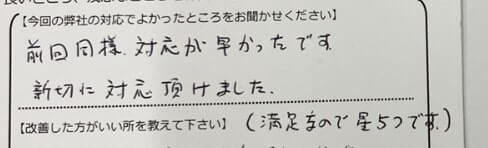 【今回の弊社の対応でよかったところをお聞かせください】
前回同様、対応が早かったです。
新切に対応頂けました。
【改善した方がいい所を教えて下さい】（満足なので星5つです。）